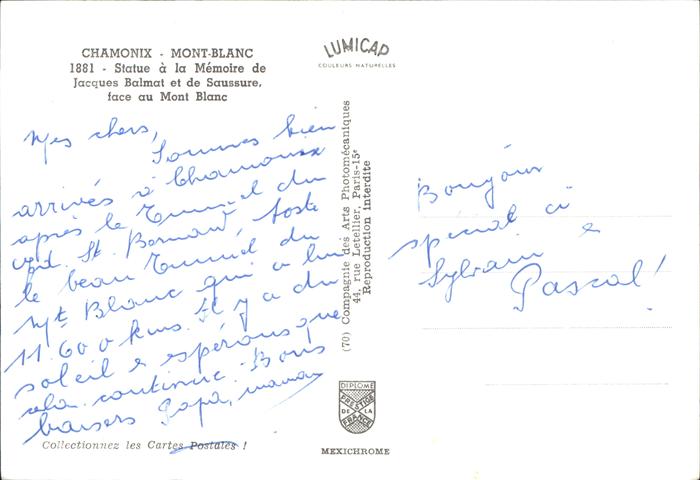 CHAMONIX - MONT-BLANC
1881 - Statue à la Mémoire de
Jacques Balmat et de Saussure,
face au Mont Blanc
LUMICAP
COULEURS NATURELLES
Mes chers,
Sommes bien
arrivés à Chamonix
après le Tunnel du
Gd. St. Bernard, reste
le beau Tunnel du
Mt Blanc qui a lui
11.600 kms. Il y a du
soleil e espérons que
cela continue. Bons
baisers Papa, maman
Collectionnez les Cartes Postales !
(70) Compagnie des Arts Photomécaniques
44, rue Letellier, Paris-15e
Reproduction Interdite
Bonjour
spécial à
Sylvain e
Pascal !
DIPLOME
PRESTIGE
DE LA
FRANCE
MEXICHROME